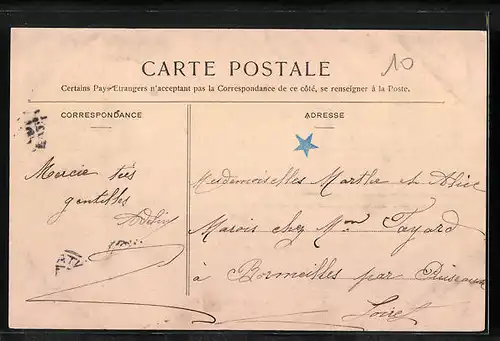 10
CARTE POSTALE
Certains Pays Etrangers n'acceptant pas la Correspondance de ce côté, se renseigner à la Poste.
CORRESPONDANCE
ADRESSE
Mercie tès
gentilles
Mesdemoiselles Marthe et Alice
Marois chez Mon Fayard
à Bormeilles par
Loiret